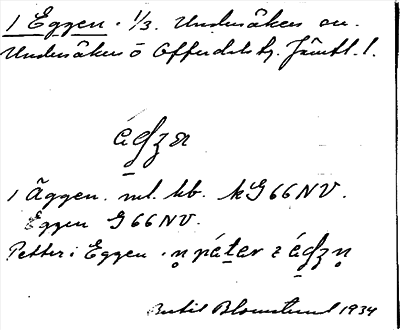 1 Eggen. 1/3. Undersåkers sn.
Undersåkers o Offerdals tg. Jämtl. l.
1 Äggen. ml. kb. kG66NV.
Eggen G66NV.
Petter i Eggen.
Bertil Blomstrand 1934